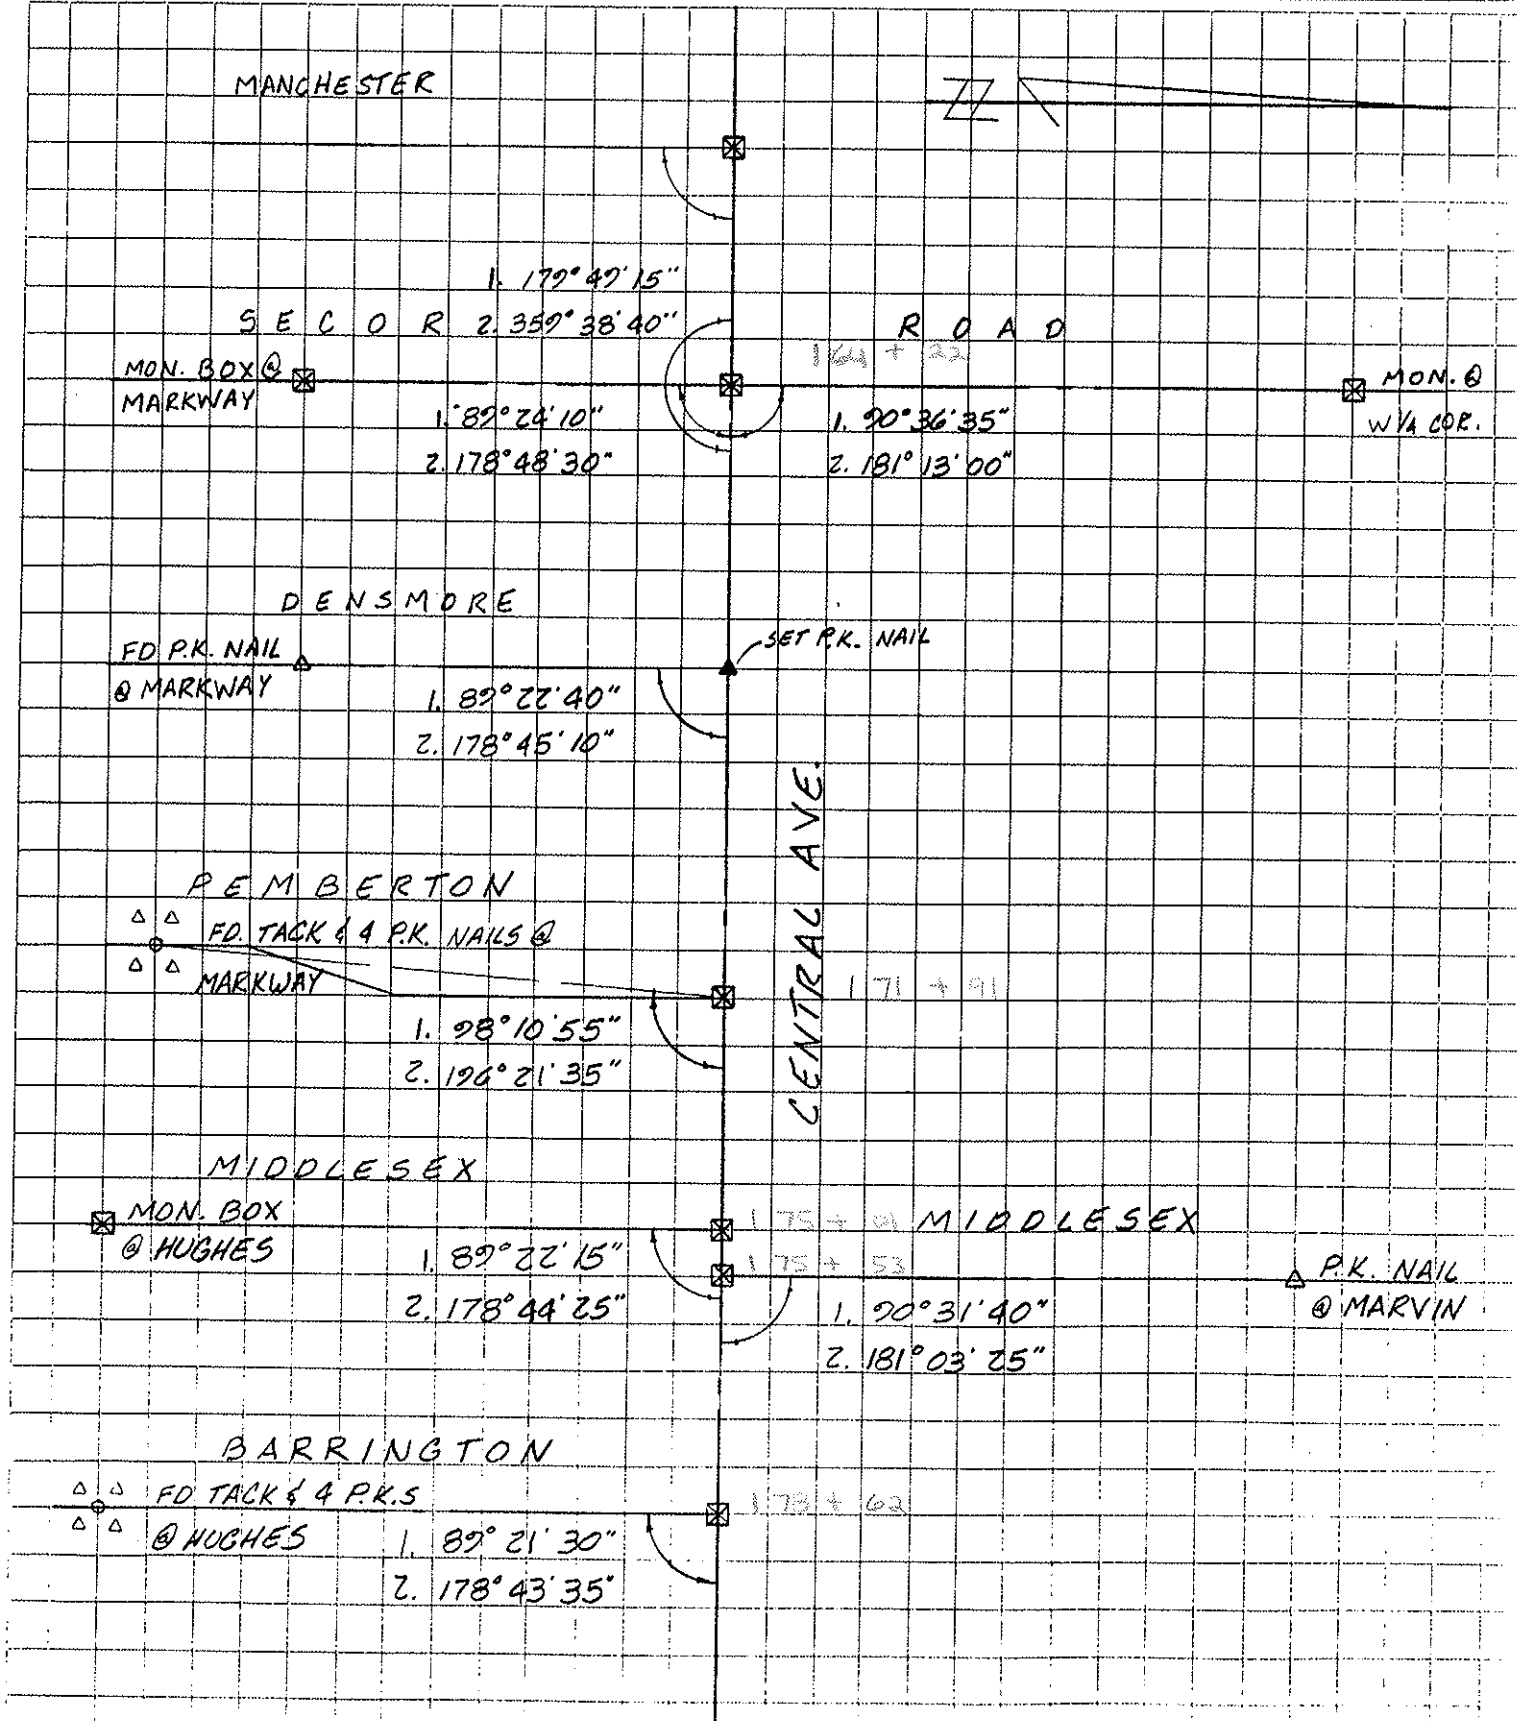 MANCHESTER
N
1. 179°49'15"
2. 359°38'40"
SECOR ROAD
164 + 22
MON. BOX @
MARKWAY
MON. @
W 1/4 COR.
1. 89°24'10"
2. 178°48'30"
1. 90°36'35"
2. 181°13'00"
DENSMORE
FD P.K. NAIL
@ MARKWAY
SET P.K. NAIL
1. 89°22'40"
2. 178°45'10"
CENTRAL AVE.
PEMBERTON
FD. TACK & 4 P.K. NAILS @
MARKWAY
171 + 91
1. 98°10'55"
2. 196°21'35"
MIDDLESEX
MON. BOX
@ HUGHES
175 + 01
MIDDLESEX
175 + 53
1. 89°22'15"
2. 178°44'25"
P.K. NAIL
@ MARVIN
1. 90°31'40"
2. 181°03'25"
BARRINGTON
FD TACK & 4 P.K.S
@ HUGHES
178 + 62
1. 89°21'30"
2. 178°43'35"